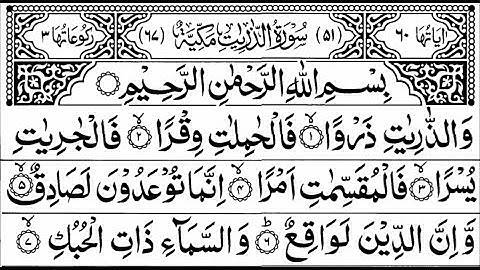 اٰيَاتُهَا ٦٠ (٥١) سُوْرَةُ الذّٰرِيٰتِ مَكِّيَّةٌ (٦٧) رُكُوْعَاتُهَا ٣
بِسْمِ اللّٰهِ الرَّحْمٰنِ الرَّحِيْمِ
وَالذّٰرِيٰتِ ذَرْوًا ۙ‏﴿۱﴾ فَالْحٰمِلٰتِ وِقْرًا ۙ‏﴿۲﴾ فَالْجٰرِيٰتِ
يُسْرًا ۙ‏﴿۳﴾ فَالْمُقَسِّمٰتِ اَمْرًا ۙ‏﴿۴﴾ اِنَّمَا تُوْعَدُوْنَ لَصَادِقٌ ۙ‏﴿۵﴾
وَّاِنَّ الدِّيْنَ لَوَاقِعٌ ؕ‏﴿۶﴾ وَالسَّمَآءِ ذَاتِ الْحُبُكِ ۙ‏﴿۷﴾